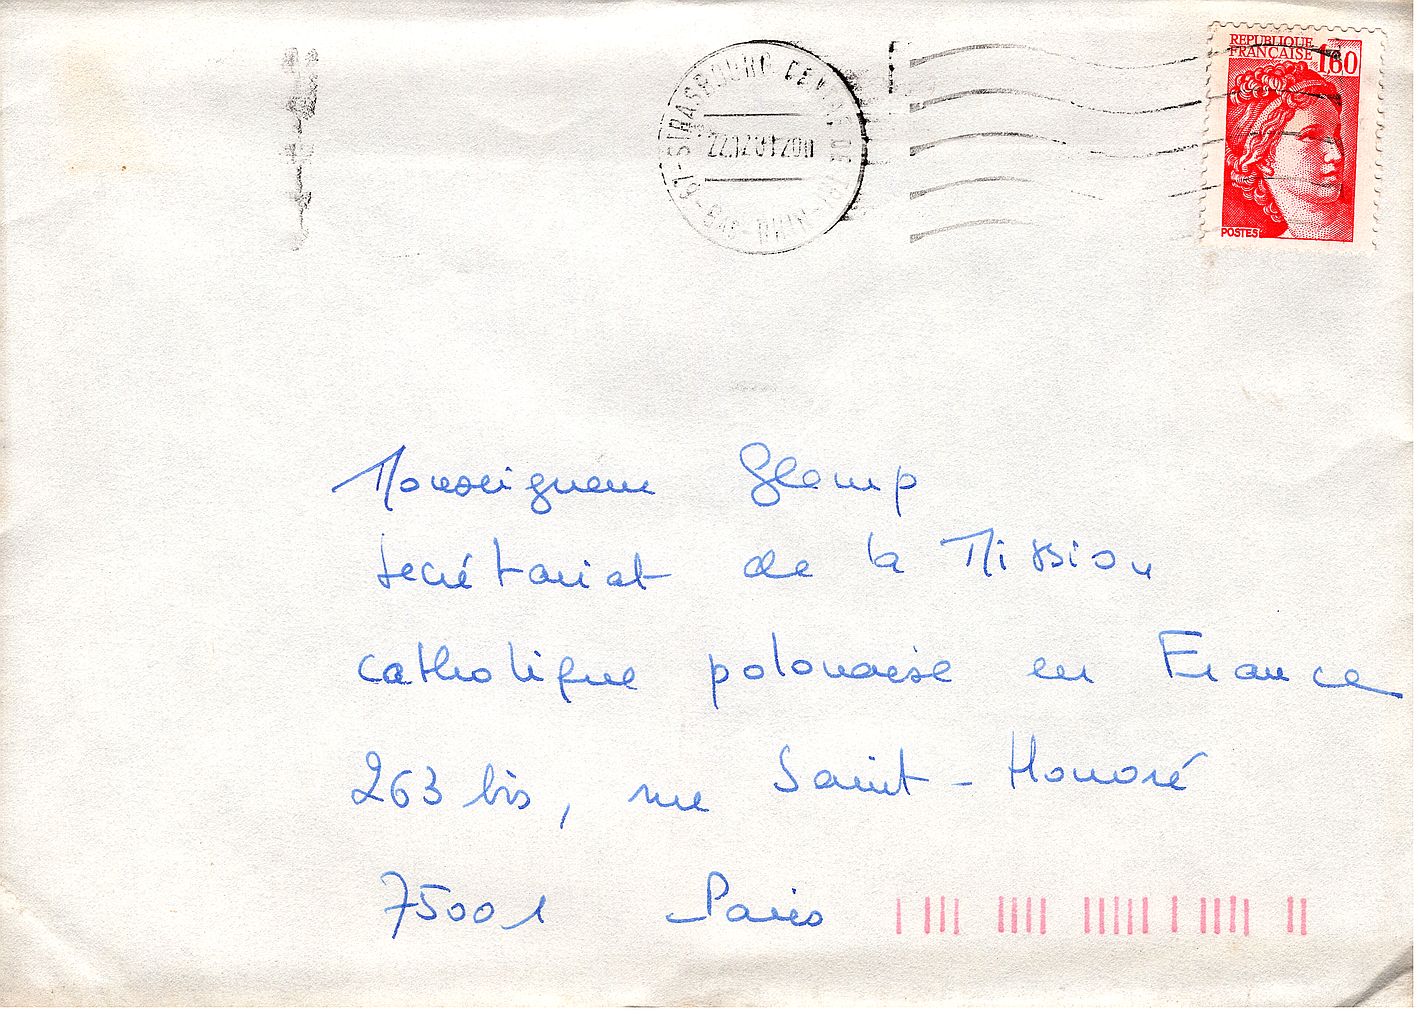 REPUBLIQUE
FRANÇAISE 1,60
POSTES
67-STRASBOURG CENTRE DE TRI-BAS-RHIN
Monseigneur Glemp
Secrétariat de la Mission
catholique polonaise en France
263 bis, rue Saint-Honoré
75001 Paris